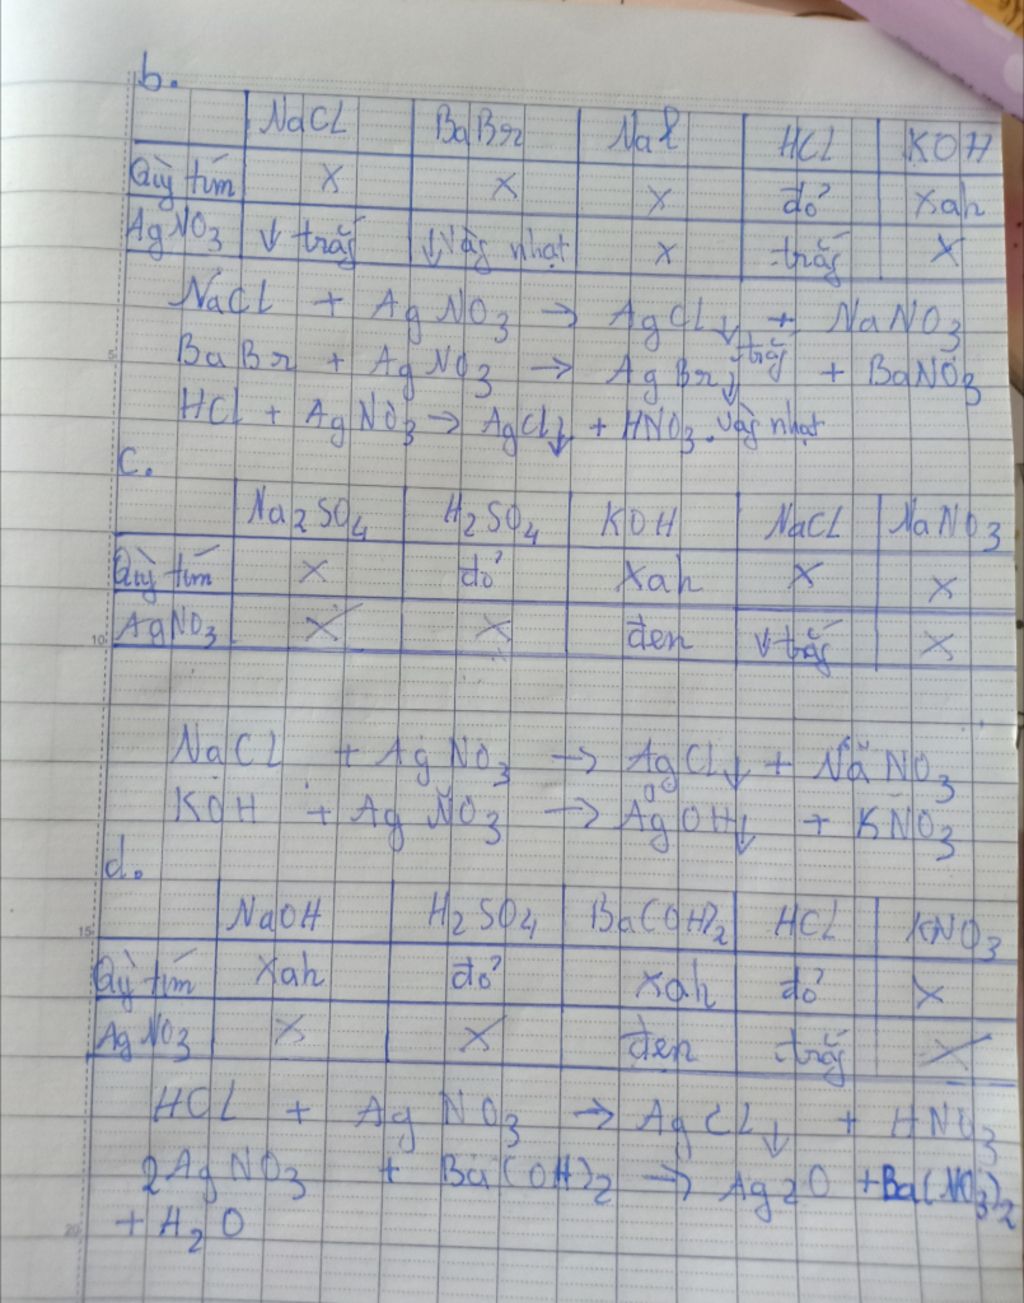 b.
NaCl BaBr NaI HCl KOH
Quỳ tím x x x đỏ xah
AgNO3 ↓ trắg ↓ vàg nhạt x trắg x
NaCl + AgNO3 → AgCl↓ + NaNO3
trắg
5 BaBr + AgNO3 → AgBr↓ + BaNO3
HCl + AgNO3 → AgCl↓ + HNO3. vàg nhạt
c.
Na2SO4 H2SO4 KOH NaCl NaNO3
Quỳ tím x đỏ xah x x
10 AgNO3 x x đen ↓ trắg x
NaCl + AgNO3 → AgCl↓ + NaNO3
KOH + AgNO3 → AgOH↓ + KNO3
d.
15 NaOH H2SO4 Ba(OH)2 HCl KNO3
Quỳ tím xah đỏ xah đỏ x
AgNO3 x x đen trắg x
HCl + AgNO3 → AgCl↓ + HNO3
2AgNO3 + Ba(OH)2 → Ag2O + Ba(NO3)2
20 + H2O